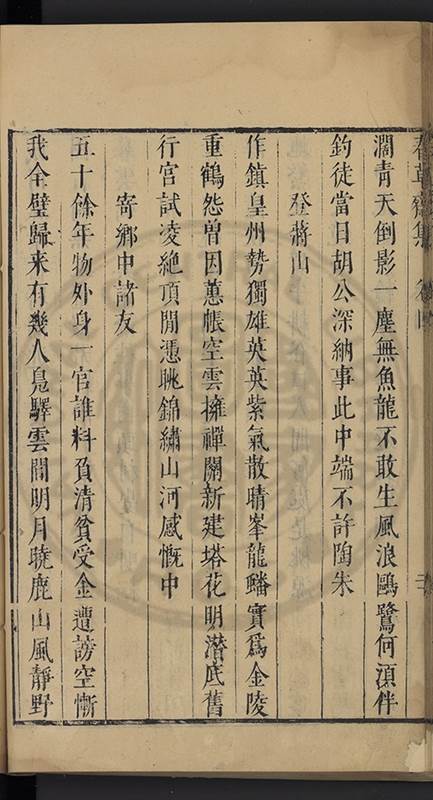 春草齋集 卷四
濶青天倒影一塵無魚龍不敢生風浪鷗鷺何湏伴
釣徒當日胡公深納事此中端不許陶朱
登蔣山
作鎮皇州勢獨雄英英紫氣散晴峯龍蟠實爲金陵
重鶴怨曽因蕙帳空雲擁禪關新建塔花明潜底舊
行宮試凌絶頂閒憑眺錦繡山河感慨中
寄鄉中諸友
五十餘年物外身一官誰料負清貧受金遭謗空慚
我全璧歸来有幾人鳧驛雲開明月曉鹿山風靜野